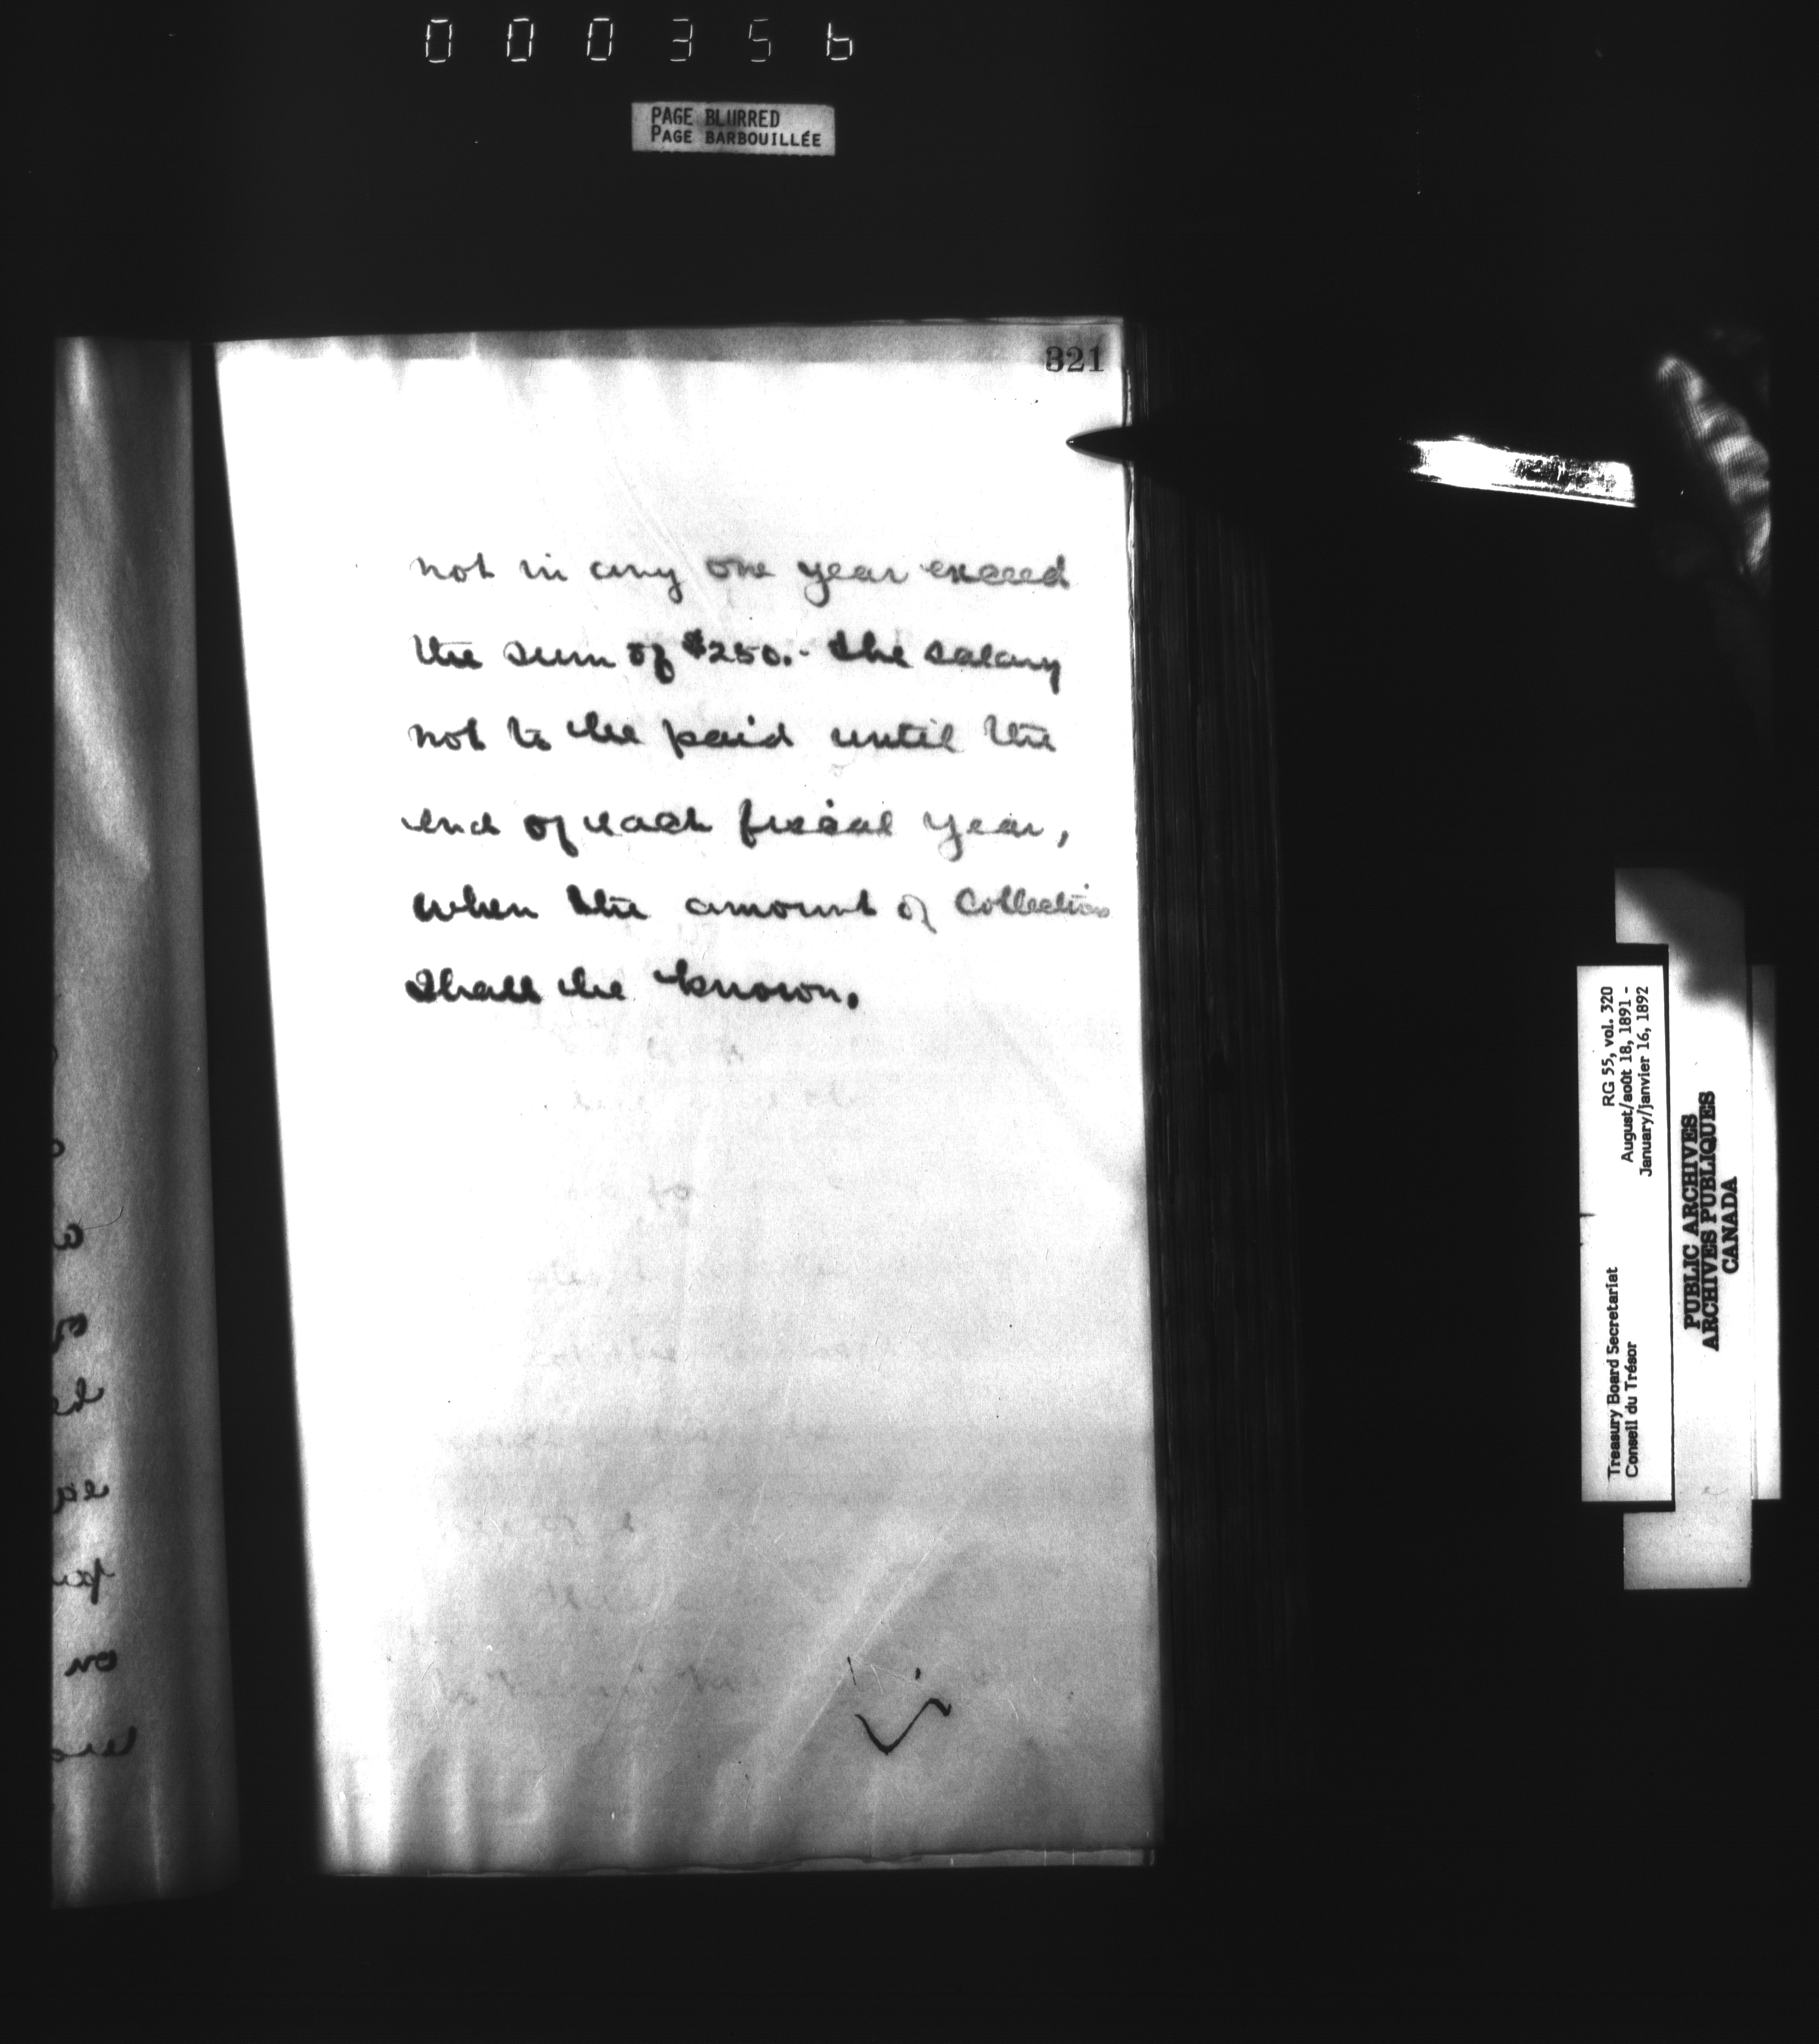 000356
PAGE BLURRED
PAGE BARBOUILLÉE
321
not in any one year exceed
the sum of $250.- the salary
not to be paid until the
end of each fiscal year,
when the amount of Collections
shall be known.
RG 55, vol. 320
August/août 18, 1891 -
January/janvier 16, 1892
Treasury Board Secretariat
Conseil du Trésor
PUBLIC ARCHIVES
ARCHIVES PUBLIQUES
CANADA